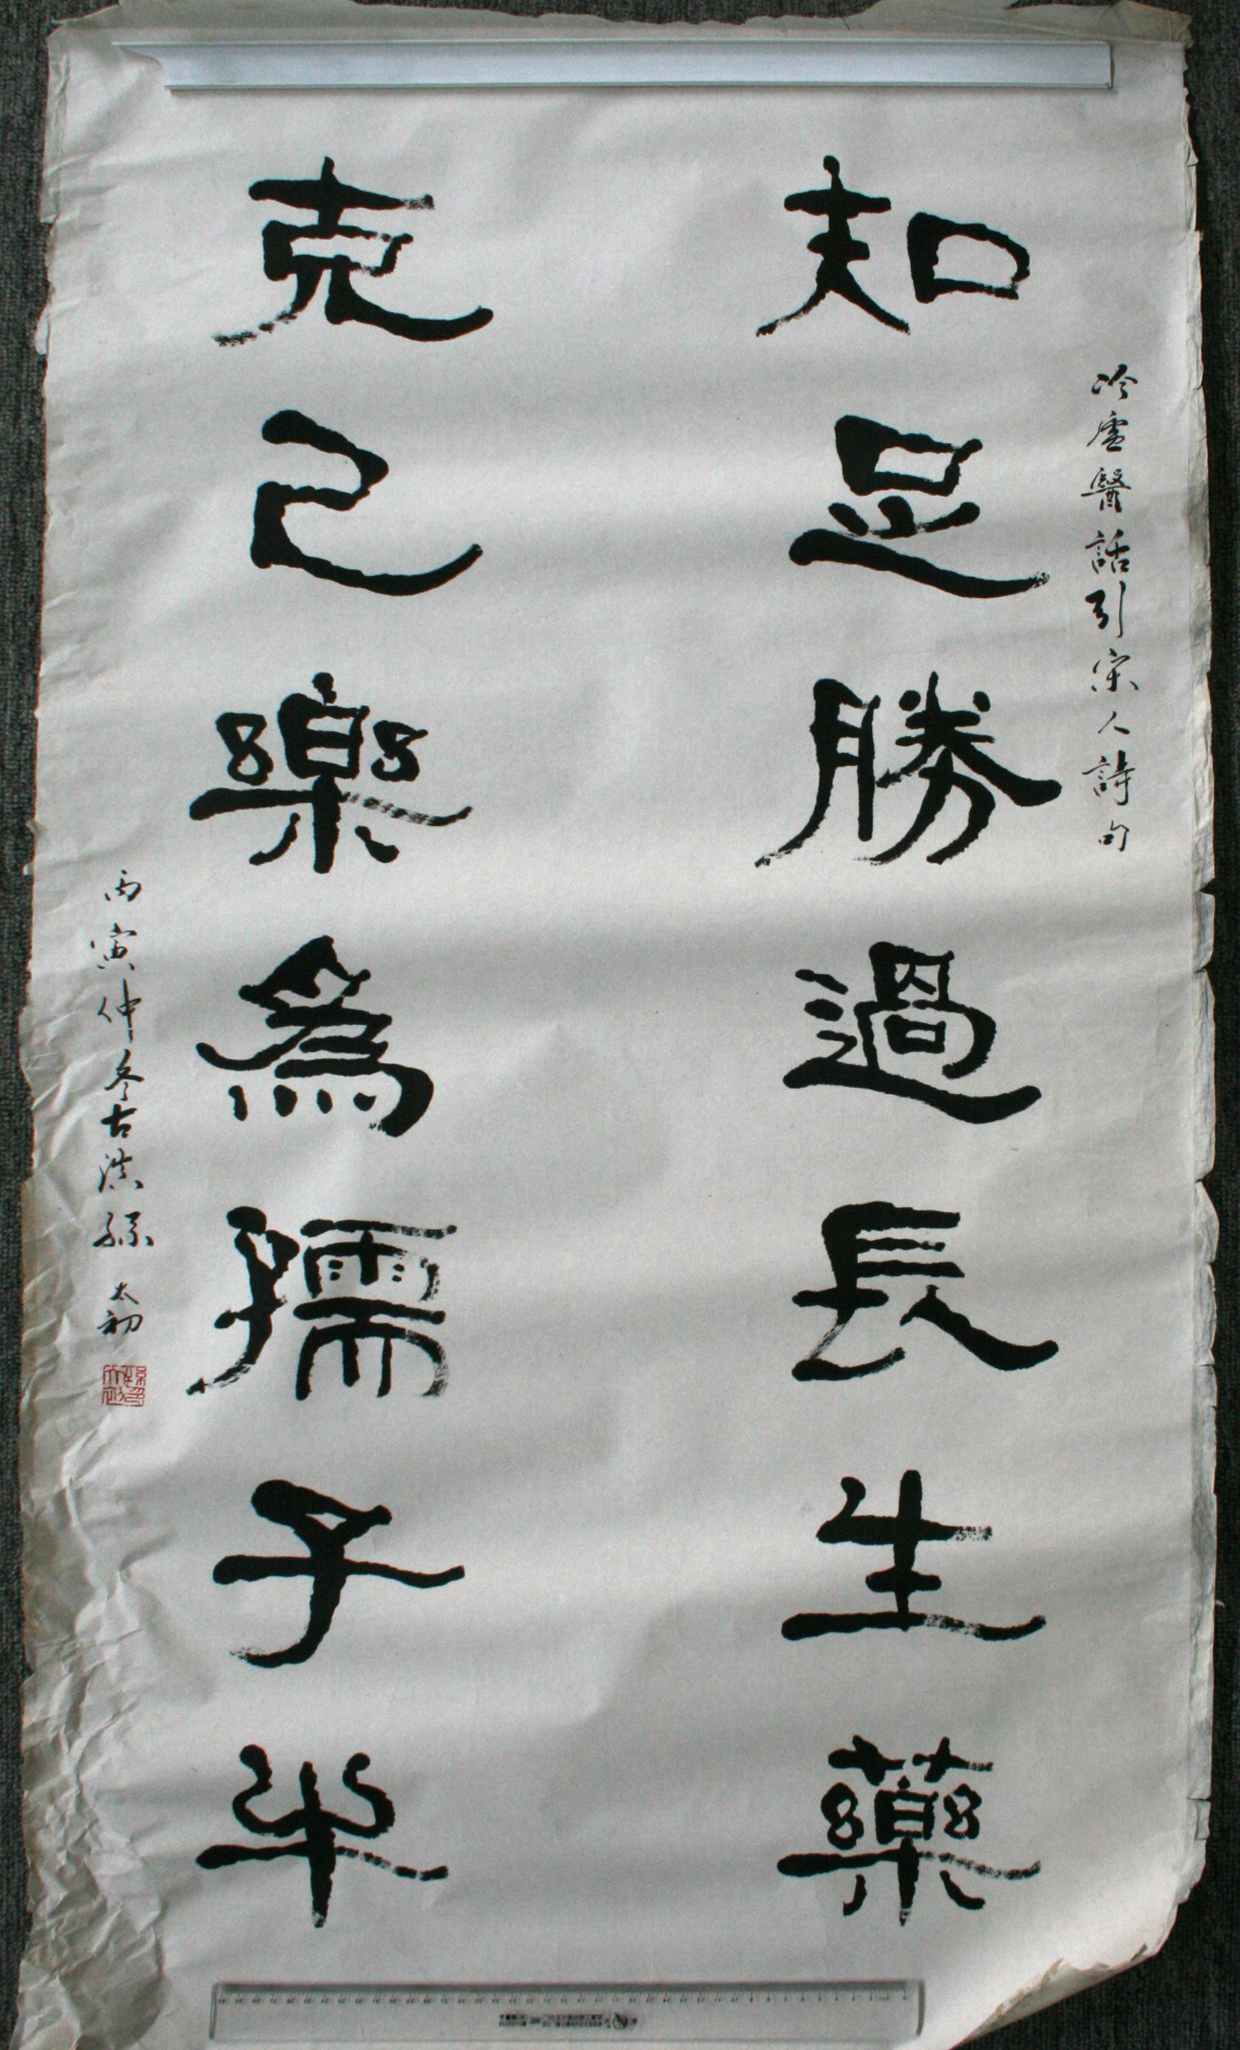 冷廬醫話引宋人詩句
知足勝過長生藥
克己樂為孺子牛
丙寅仲冬古滇孫太初